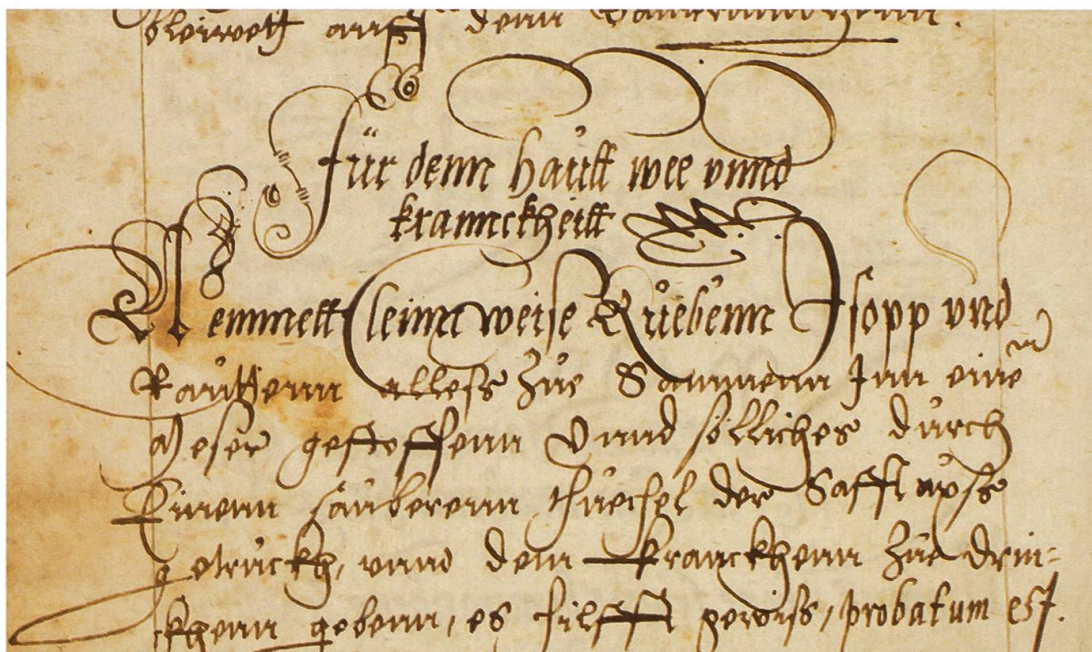 bleiweiß auff denn
Für denn hautt wee vnnd
krannckheitt
Nemmett Cleinn weise Ruebenn Jsopp vnd
Rauttenn alless zue Sammenn Jnn eine
Meser gestossenn Vnnd sölliches durch
Einenn sauberenn thuechel der Safft auss
getruckh, vnnd dem kranckhenn zue drin-
khenn gebenn, es hilfft gewiss, probatum est.